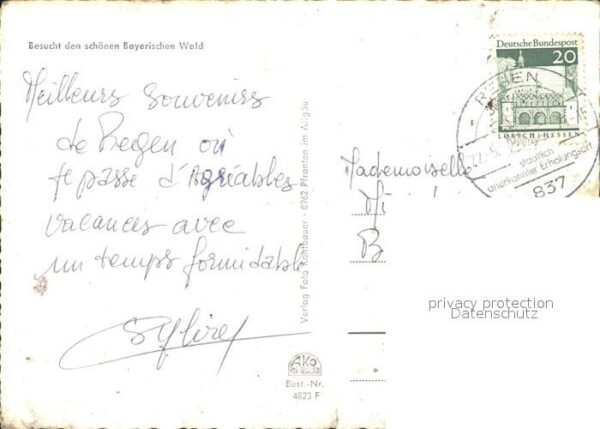 Besucht den schönen Bayerischen Wald
Meilleurs souvenirs
de Regen où
je passe d'Agréables
vacances avec
un temps formidable
Verlag Foto Kahlbauer · 8962 Pfronten im Allgäu
AKO
Best.-Nr.
4823 F
Deutsche Bundespost
20
LORSCH/HESSEN
REGEN
staatlich
anerkannter Erholungsort
837
Mademoiselle
Mi
B
privacy protection
Datenschutz